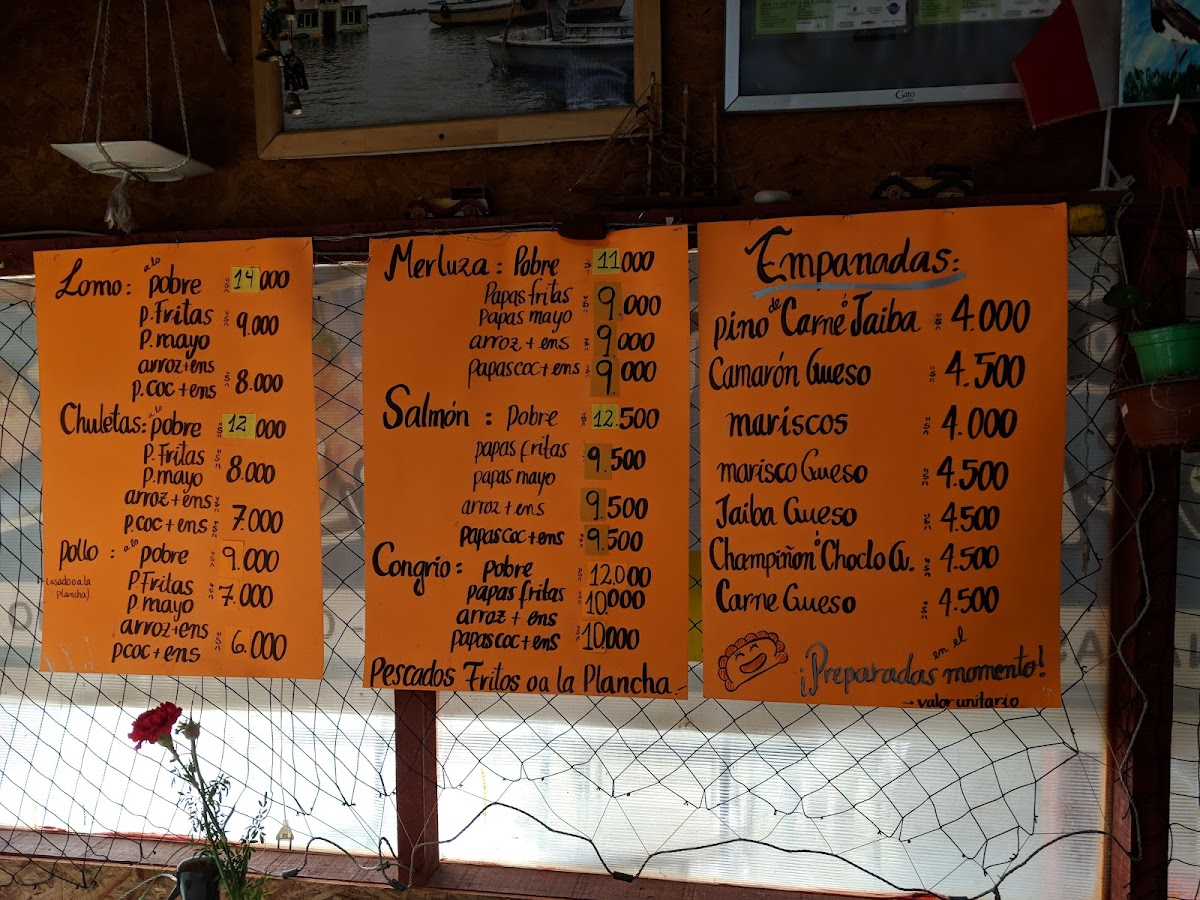 Lomo: a lo pobre $ 14000
P.Fritas
P.mayo $ 9.000
arroz+ens
P.coc+ens $ 8.000
Chuletas: a lo pobre $ 12000
P.Fritas
P.mayo $ 8.000
arroz+ens
P.coc+ens $ 7.000
Pollo: a lo pobre $ 9.000
(asado o a la
plancha)
P.Fritas
P.mayo $ 7.000
arroz+ens
Pcoc+ens $ 6.000
Merluza: Pobre $ 11000
Papas fritas
Papas mayo $ 9.000
arroz+ens $ 9.000
papas coc+ens $ 9 000
Salmón: Pobre $ 12.500
papas fritas
papas mayo $ 9.500
arroz+ens $ 9.500
papas coc+ens $ 9.500
Congrio: pobre $ 12.000
papas fritas $ 10.000
arroz+ens
papas coc+ens $ 10.000
Pescados Fritos o a la Plancha
Empanadas:
pino de Carne ó Jaiba $ 4.000
Camarón Queso $ 4.500
mariscos $ 4.000
marisco Queso $ 4.500
Jaiba Queso $ 4.500
Champiñon ó Choclo Q. $ 4.500
Carne Queso $ 4.500
¡Preparadas en el momento!
→ valor unitario
Gato